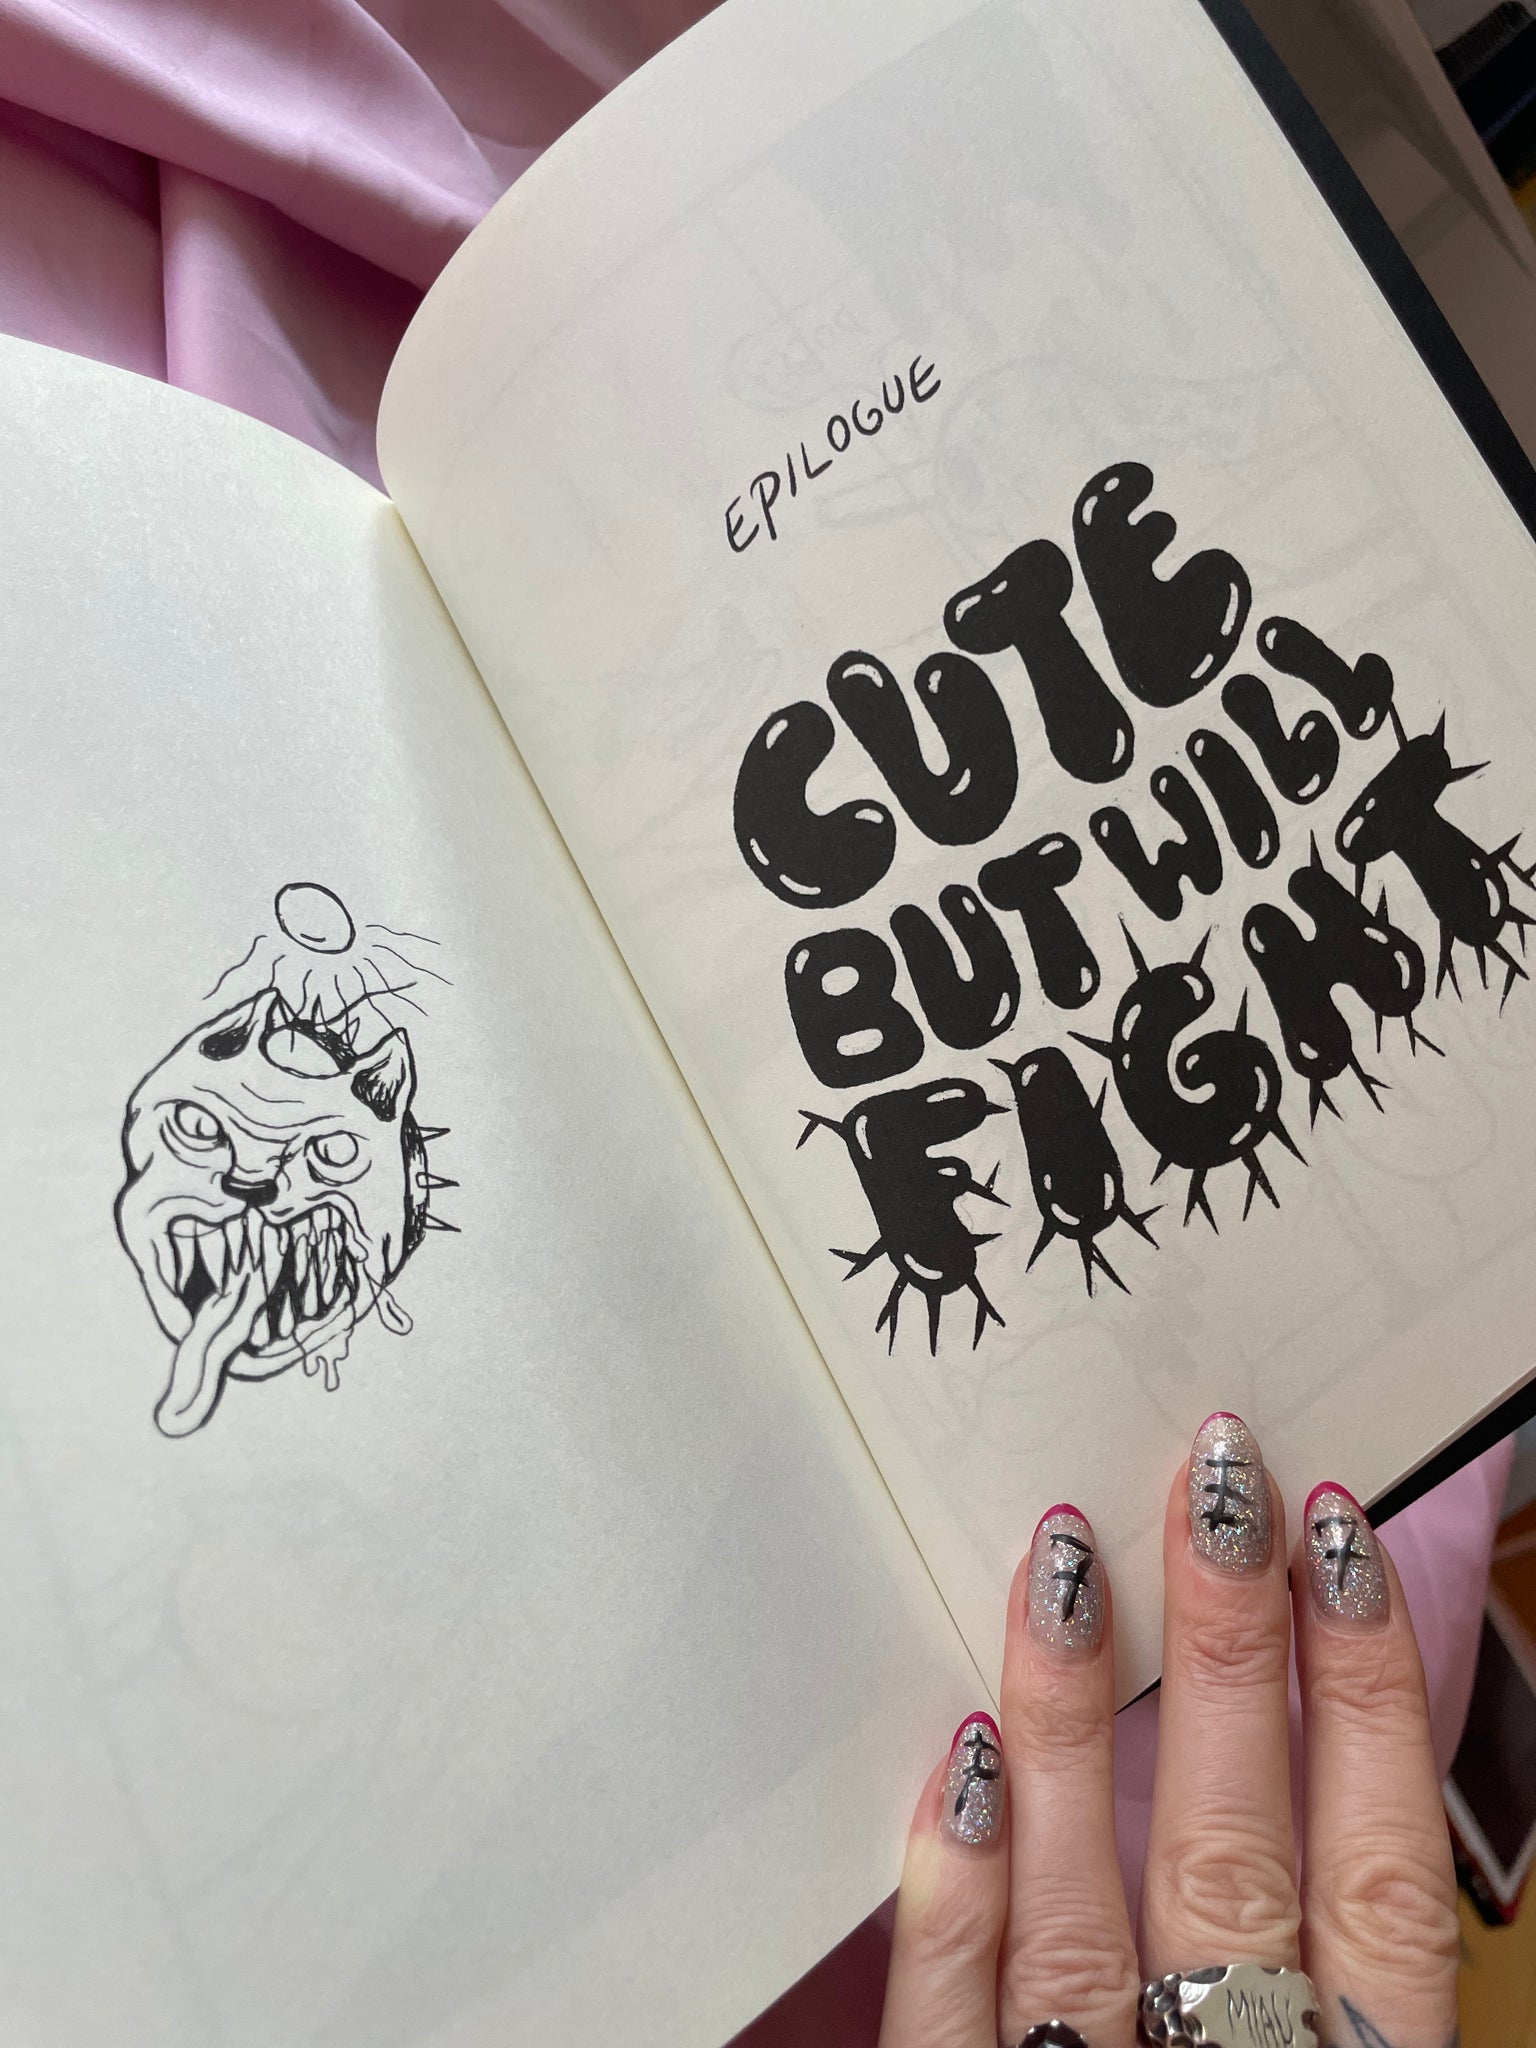 EPILOGUE
CUTE
BUT WILL
FIGHT
MIAU